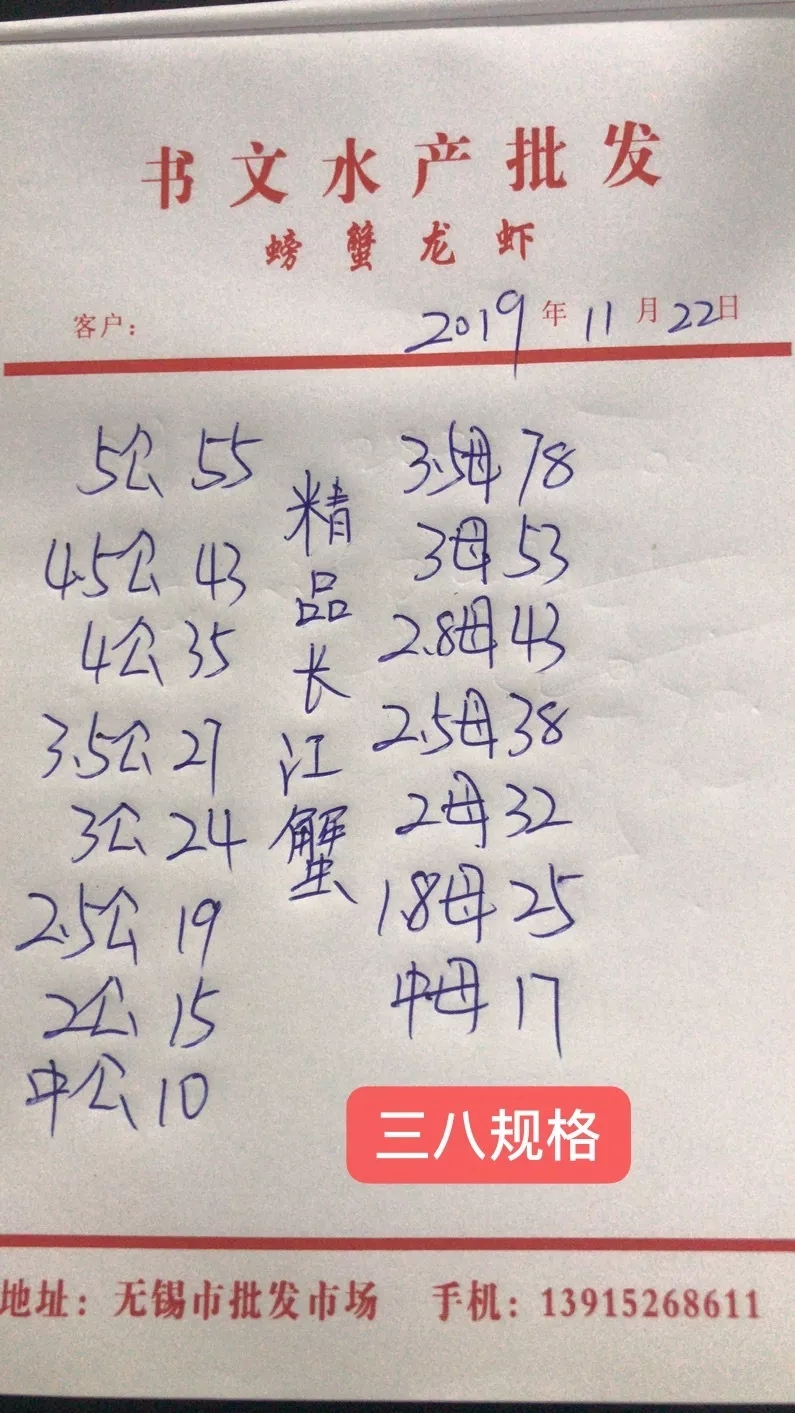 书文水产批发
螃蟹龙虾
客户：
2019年11月22日
5公 55
4.5公 43
4公 35
3.5公 27
3公 24
2.5公 19
2公 15
中公 10
精品长江蟹
3.5母 78
3母 53
2.8母 43
2.5母 38
2母 32
1.8母 25
中母 17
三八规格
地址：无锡市批发市场 手机：13915268611